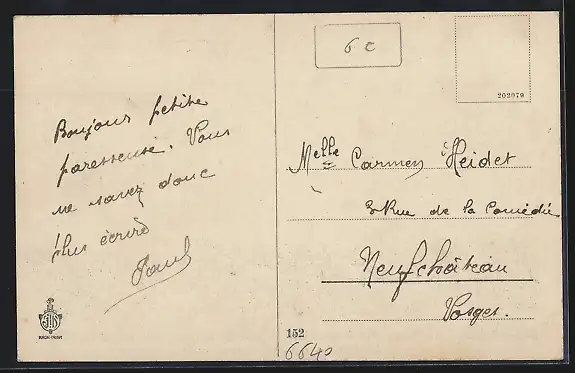 6 c
202979
Bonjour petite
paresseuse. Vous
ne savez donc
plus écrire
Paul
Melle Carmen Heidet
3 Rue de la Comédie
Neufchâteau
Vosges.
152
6640